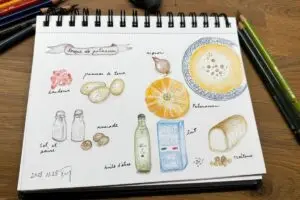 Soupe de potimarron
oignon
pommes de terre
lardons
Potimarron
muscade
lait
Sel et
poivre
huile d'olive
croûtons